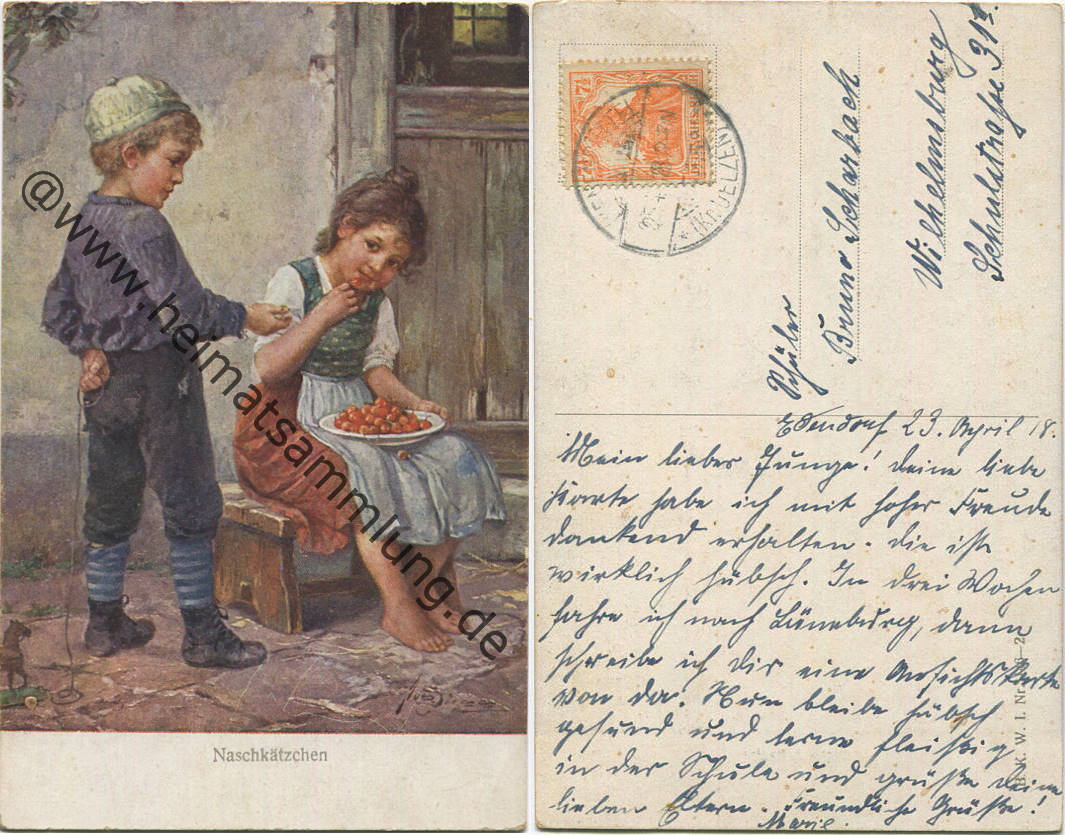 @www.heimatsammlung.de
Naschkätzchen
7½
DEUTSCHES
(Kr. UELZEN)
Schüler
Bruno Scharbach
Wilhelmsburg
Schulstrasse 31
B. K. W. I. Nr.
Ebendorf 23. April 18.
Mein lieber Junge! deine liebe
Karte habe ich mit hoher Freude
dankend erhalten. die ist
wirklich hübsch. In drei Wochen
fahre ich nach Lüneburg, dann
schreibe ich dir eine Ansichtskarte
von da. Nun bleibe hübsch
gesund und lerne fleissig
in der Schule und grüße deine
lieben Eltern. Freundliche Grüße!
Marie.